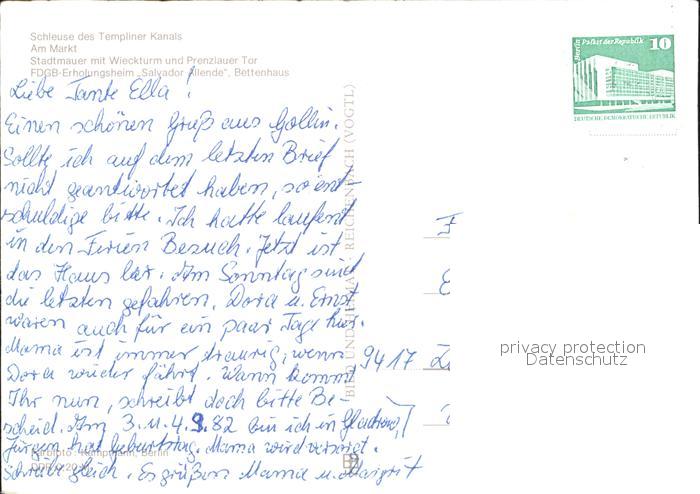 Schleuse des Templiner Kanals
Am Markt
Stadtmauer mit Wieckturm und Prenzlauer Tor
FDGB-Erholungsheim „Salvador Allende", Bettenhaus
Berlin Palast der Republik 10
DEUTSCHE DEMOKRATISCHE REPUBLIK
Liebe Tante Ella!
Einen schönen Gruß aus Gollin.
Sollte ich auf dem letzten Brief
nicht geantwortet haben, so ent-
schuldige bitte. Ich hatte laufent
in den Ferien Besuch. Jetzt ist
das Haus leer. Am Sonntag sind
die letzten gefahren. Dora u. Ernst
waren auch für ein paar Tage hier.
Mama ist immer traurig, wenn
Dora wieder fährt. Wann kommt
Ihr nun, schreibt doch bitte Be-
scheid. Am 3. u. 4. 9. 82 bin ich in
Jürgen hat Geburtstag. Mama wird versorgt.
Schreibe gleich. Es grüßen Mama u. Margrit
9417 Z
BILD UND HEIMAT REICHENBACH (VOGTL)
Farbfoto: Kampmann, Berlin
privacy protection
Datenschutz